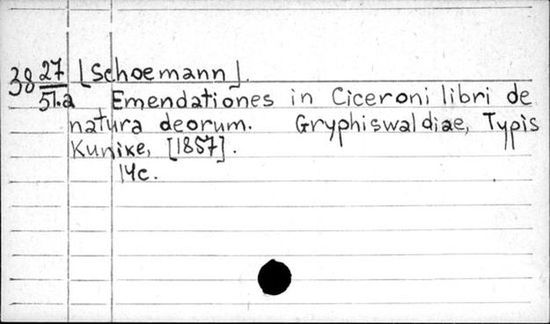 38 27/51.a [Schoemann].
Emendationes in Ciceroni libri de
natura deorum. Gryphiswaldiae, Typis
Kunike, [1857].
14c.